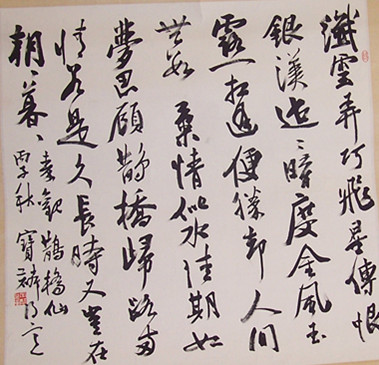 纖雲弄巧飛星傳恨
銀漢迢〻暗度金風玉
露一相逢便勝卻人間
無數 柔情似水佳期如
夢忍顧鵲橋歸路兩
情若是久長時又豈在
朝〻暮〻
秦觀 鵲橋仙
丙子秋 寶麟